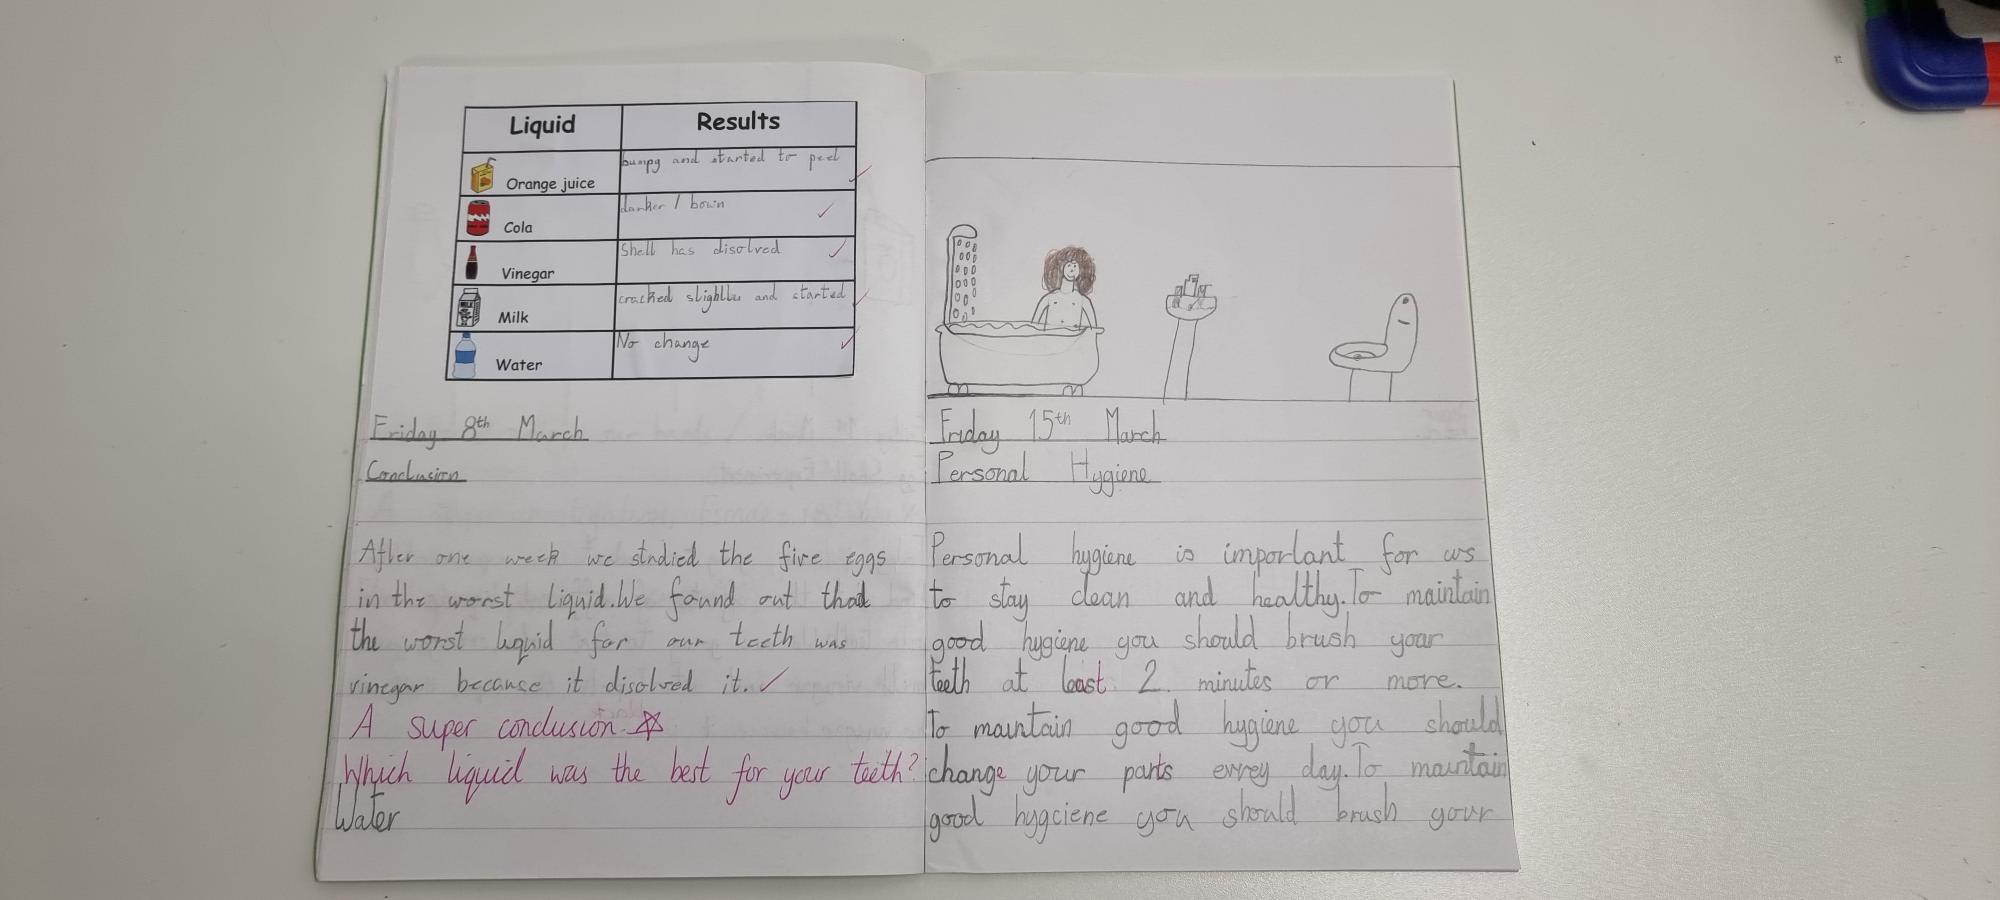 Liquid Results
Orange juice bumpy and started to peel
Cola darker / bown
Vinegar Shell has disolved
Milk cracked slightly and started
Water No change
Friday 8th March
Conclusion
After one week we studied the five eggs
in the worst liquid. We found out that
the worst liquid for our teeth was
vinegar because it disolved it.
A super conclusion
Which liquid was the best for your teeth?
Water
Friday 15th March
Personal Hygiene
Personal hygiene is important for us
to stay clean and healthy. To maintain
good hygiene you should brush your
teeth at least 2 minutes or more.
To maintain good hygiene you should
change your parts evrey day. To maintain
good hygciene you should brush your